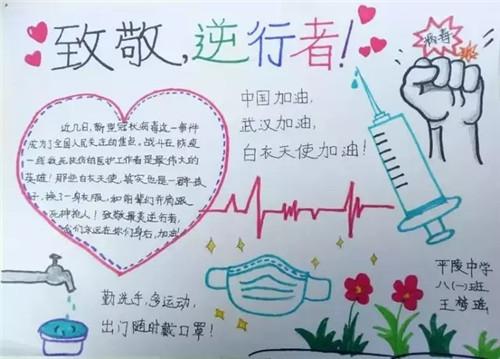 致敬,逆行者!
病毒
中国加油,
武汉加油,
白衣天使加油!
近几日,新型冠状病毒这一事件
成为了全国人民关注的焦点,战斗在防疫
一线救死扶伤的医护工作者是最伟大的
英雄!那些白衣天使,其实也是一群孩
子,换了一身衣服,和前辈们并肩跟
死神抢人!致敬最美逆行者,
我们永远在你们身后,加油
勤洗手,多运动,
出门随时戴口罩!
平陵中学
八(一)班
王梦瑶